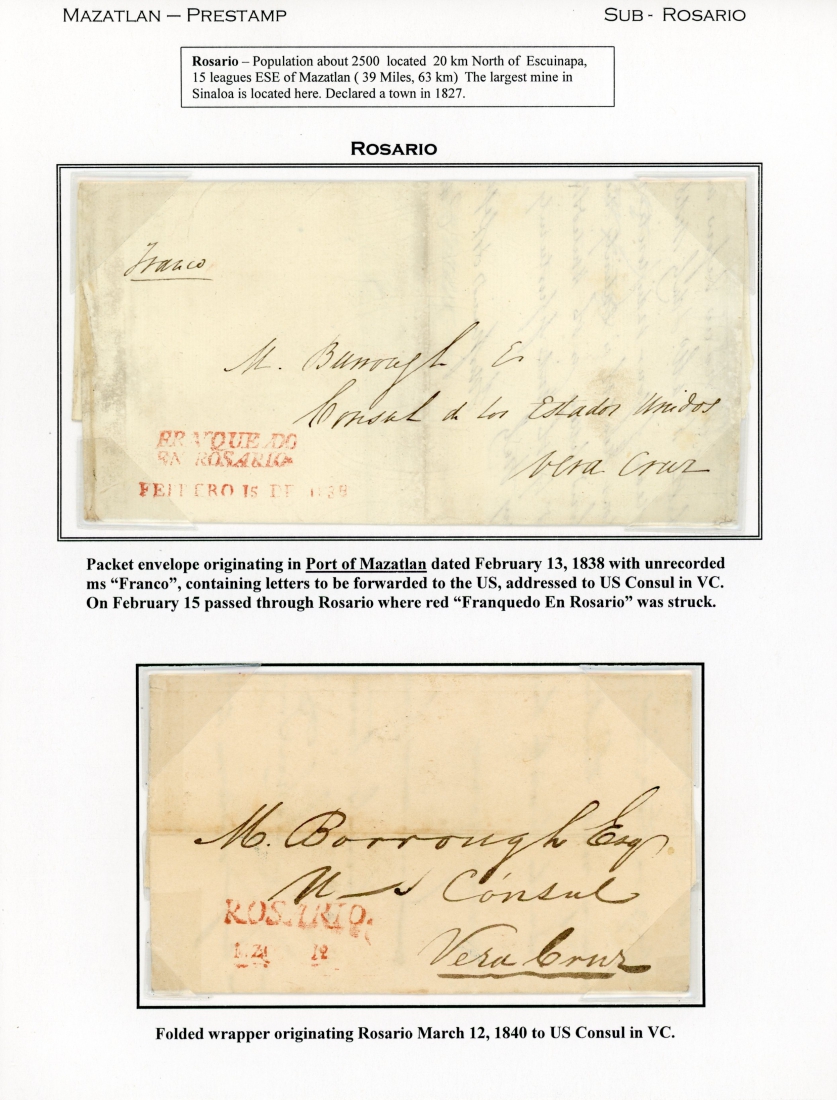 MAZATLAN – PRESTAMP
SUB - ROSARIO
Rosario – Population about 2500 located 20 km North of Escuinapa,
15 leagues ESE of Mazatlan ( 39 Miles, 63 km) The largest mine in
Sinaloa is located here. Declared a town in 1827.
ROSARIO
Franco
M. Burrough Es
Consul de los Estados Unidos
Vera Cruz
FRANQUEADO
EN ROSARIO
FEBRERO 15 DE 1838
Packet envelope originating in Port of Mazatlan dated February 13, 1838 with unrecorded
ms “Franco”, containing letters to be forwarded to the US, addressed to US Consul in VC.
On February 15 passed through Rosario where red “Franquedo En Rosario” was struck.
M. Borrough Esqr
U S Consul
ROSARIO.
Vera Cruz
Folded wrapper originating Rosario March 12, 1840 to US Consul in VC.